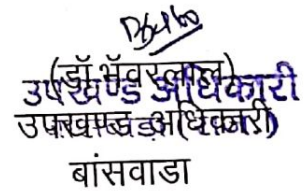 (डॉ. भँवरलाल)
उपखण्ड अधिकारी
उपखण्ड अधिकारी
बांसवाडा